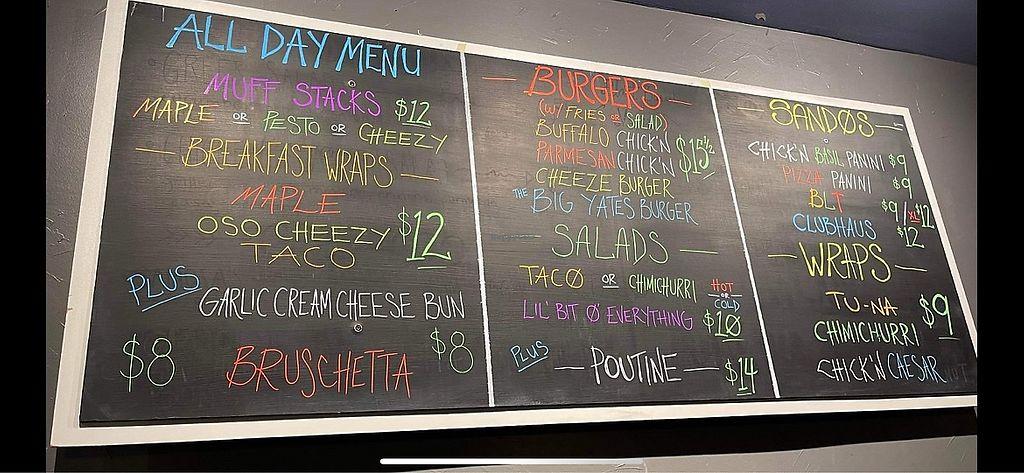 ALL DAY MENU
MUFF STACKS $12
MAPLE OR PESTO OR CHEEZY
— BREAKFAST WRAPS —
MAPLE
OSO CHEEZY $12
TACO
PLUS
GARLIC CREAM CHEESE BUN
$8 BRUSCHETTA $8
— BURGERS —
(W/ FRIES OR SALAD)
BUFFALO CHICK'N
PARMESAN CHICK'N $15½
CHEEZE BURGER
THE BIG YATES BURGER
— SALADS —
TACO OR CHIMICHURRI HOT OR COLD
LIL' BIT O' EVERYTHING $10
PLUS — POUTINE — $14
— SANDØS —
CHICK'N BASIL PANINI $9
PIZZA PANINI $9
BLT $9/XL $12
CLUBHAUS $12
— WRAPS —
TU-NA $9
CHIMICHURRI
CHICK'N CAESAR